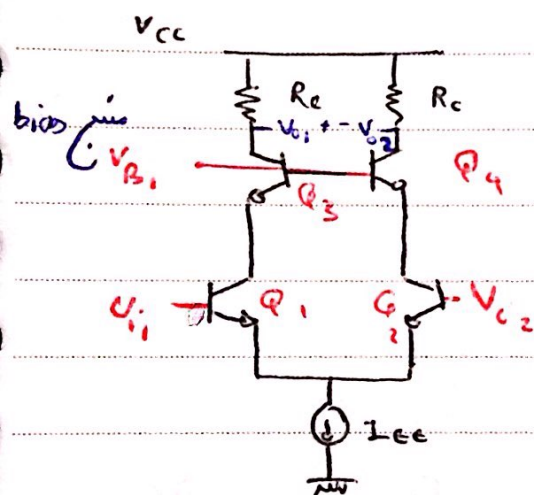 Vcc
Rc Rc
bias منبع
Vo1 + - Vo2
VB1
Q3
Q4
Vi1 Q1
Q2 Vi2
IEE